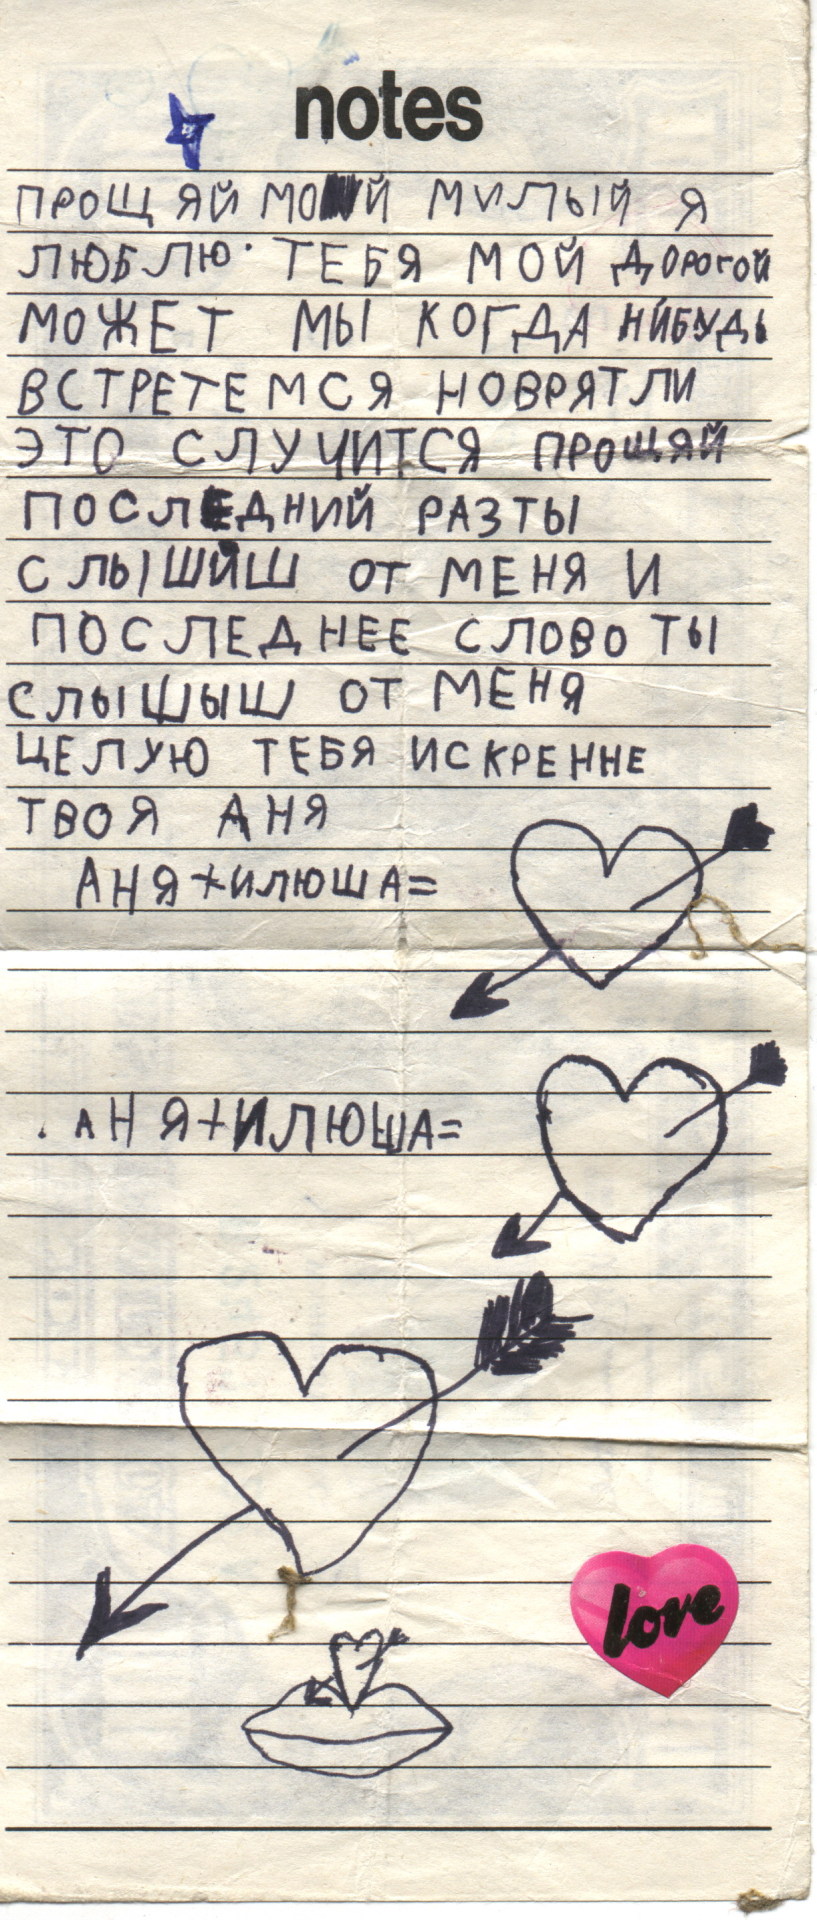 notes
ПРОЩЯЙ МОЙ МИЛЫЙ Я
ЛЮБЛЮ ТЕБЯ МОЙ ДОРОГОЙ
МОЖЕТ МЫ КОГДА НИБУДЬ
ВСТРЕТЕМСЯ НОВРЯТЛИ
ЭТО СЛУЧИТСЯ ПРОЩЯЙ
ПОСЛЕДНИЙ РАЗТЫ
СЛЫШИШ ОТ МЕНЯ И
ПОСЛЕДНЕЕ СЛОВО ТЫ
СЛЫШЫШ ОТ МЕНЯ
ЦЕЛУЮ ТЕБЯ ИСКРЕННЕ
ТВОЯ АНЯ
АНЯ+ИЛЮША=
АНЯ+ИЛЮША=
love